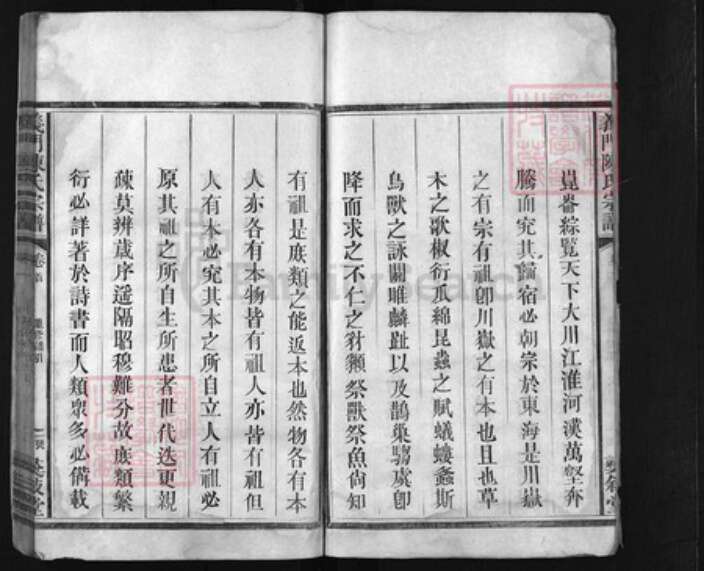 義門陳氏宗譜
崑崙綜覽天下大川江淮河漢萬壑奔
騰而究其歸宿必朝宗於東海是川嶽
之有宗有祖卽川嶽之有本也且也草
木之歌椒衍瓜綿昆蟲之賦蟻螻螽斯
鳥獸之詠關雎麟趾以及鵲巢騶虞卽
降而求之不仁之豺獺祭獸祭魚尙知
有祖是庶類之能返本也然物各有本
人亦各有本物皆有祖人亦皆有祖但
人有本必究其本之所自立人有祖必
原其祖之所自生所患者世代迭更親
疎莫辨歲序遥隔昭穆難分故庶類繁
衍必詳著於詩書而人類衆多必備載
義門陳氏宗譜
卷首
FamilySearch